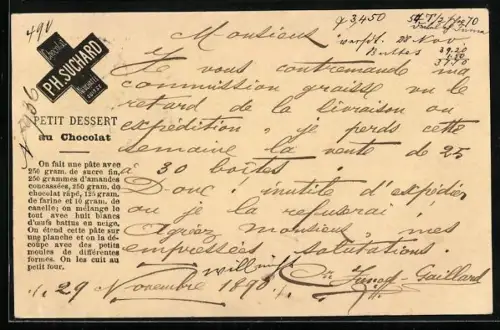 490
Chocolat
PH. SUCHARD
Neuchâtel
SUISSE
PETIT DESSERT
au Chocolat
On fait une pâte avec
250 gram. de sucre fin,
250 grammes d'amandes
concassées, 250 gram. de
chocolat râpé, 125 gram.
de farine et 10 gram. de
canelle; on mélange le
tout avec huit blancs
d'œufs battus en neige.
On étend cette pâte sur
une planche et on la dé-
coupe avec des petits
moules de différentes
formes. On les cuit au
petit four.
3,450
28 Nov
39.20
Monsieur
Je vous contremande ma
commission graisse vu le
retard de la livraison ou
expédition, je perds cette
semaine la vente de 25
à 30 boîtes!
Donc inutile d'expédier
ou je la refuserai!
Agréez monsieur, mes
empressées salutations.
Junod-Gaillard
29 Novembre 1890